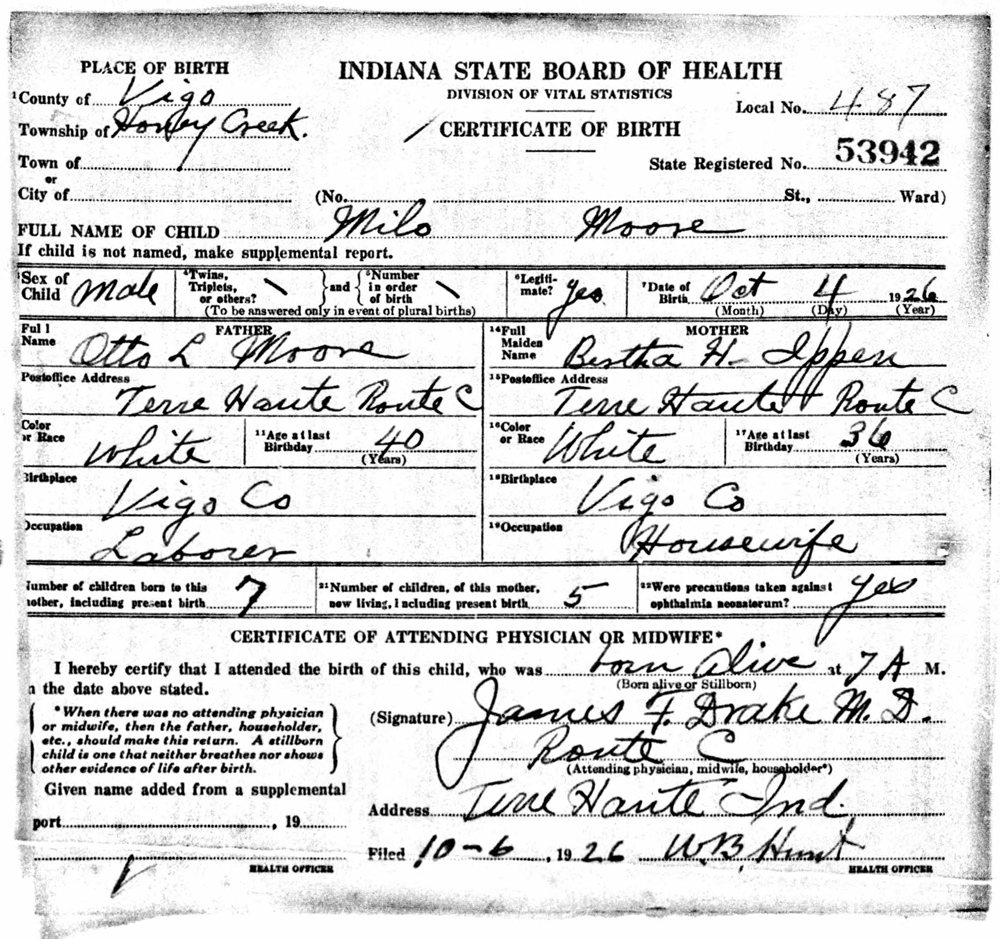 PLACE OF BIRTH
INDIANA STATE BOARD OF HEALTH
DIVISION OF VITAL STATISTICS
CERTIFICATE OF BIRTH
¹County of Vigo
Township of Honey Creek.
Town of
or
City of
(No. St., Ward)
Local No. 487
State Registered No. 53942
FULL NAME OF CHILD Milo Moore
If child is not named, make supplemental report.
³Sex of Child Male
⁴Twins, Triplets, or others? \ and ⁵Number in order of birth \
(To be answered only in event of plural births)
⁶Legitimate? yes
⁷Date of Birth Oct 4 1926
(Month) (Day) (Year)
FATHER
Full Name Otto L Moore
Postoffice Address
Terre Haute Route C
Color or Race White
¹¹Age at last Birthday 40
(Years)
Birthplace
Vigo Co
Occupation
Laborer
MOTHER
¹⁴Full Maiden Name Bertha H- Ippen
¹⁵Postoffice Address
Terre Haute Route C
¹⁶Color or Race White
¹⁷Age at last Birthday 36
(Years)
¹⁸Birthplace
Vigo Co
¹⁹Occupation
Housewife
Number of children born to this mother, including present birth 7
²¹Number of children, of this mother, now living, including present birth 5
²²Were precautions taken against ophthalmia neonatorum? yes
CERTIFICATE OF ATTENDING PHYSICIAN OR MIDWIFE*
I hereby certify that I attended the birth of this child, who was born alive at 7 A M.
(Born alive or Stillborn)
n the date above stated.
*When there was no attending physician
or midwife, then the father, householder,
etc., should make this return. A stillborn
child is one that neither breathes nor shows
other evidence of life after birth.
(Signature) James F. Drake M.D.
Route C
(Attending physician, midwife, householder*)
Given name added from a supplemental
port , 19
HEALTH OFFICER
Address Terre Haute Ind.
Filed 10-6, 1926 W.B. Hunt
HEALTH OFFICER